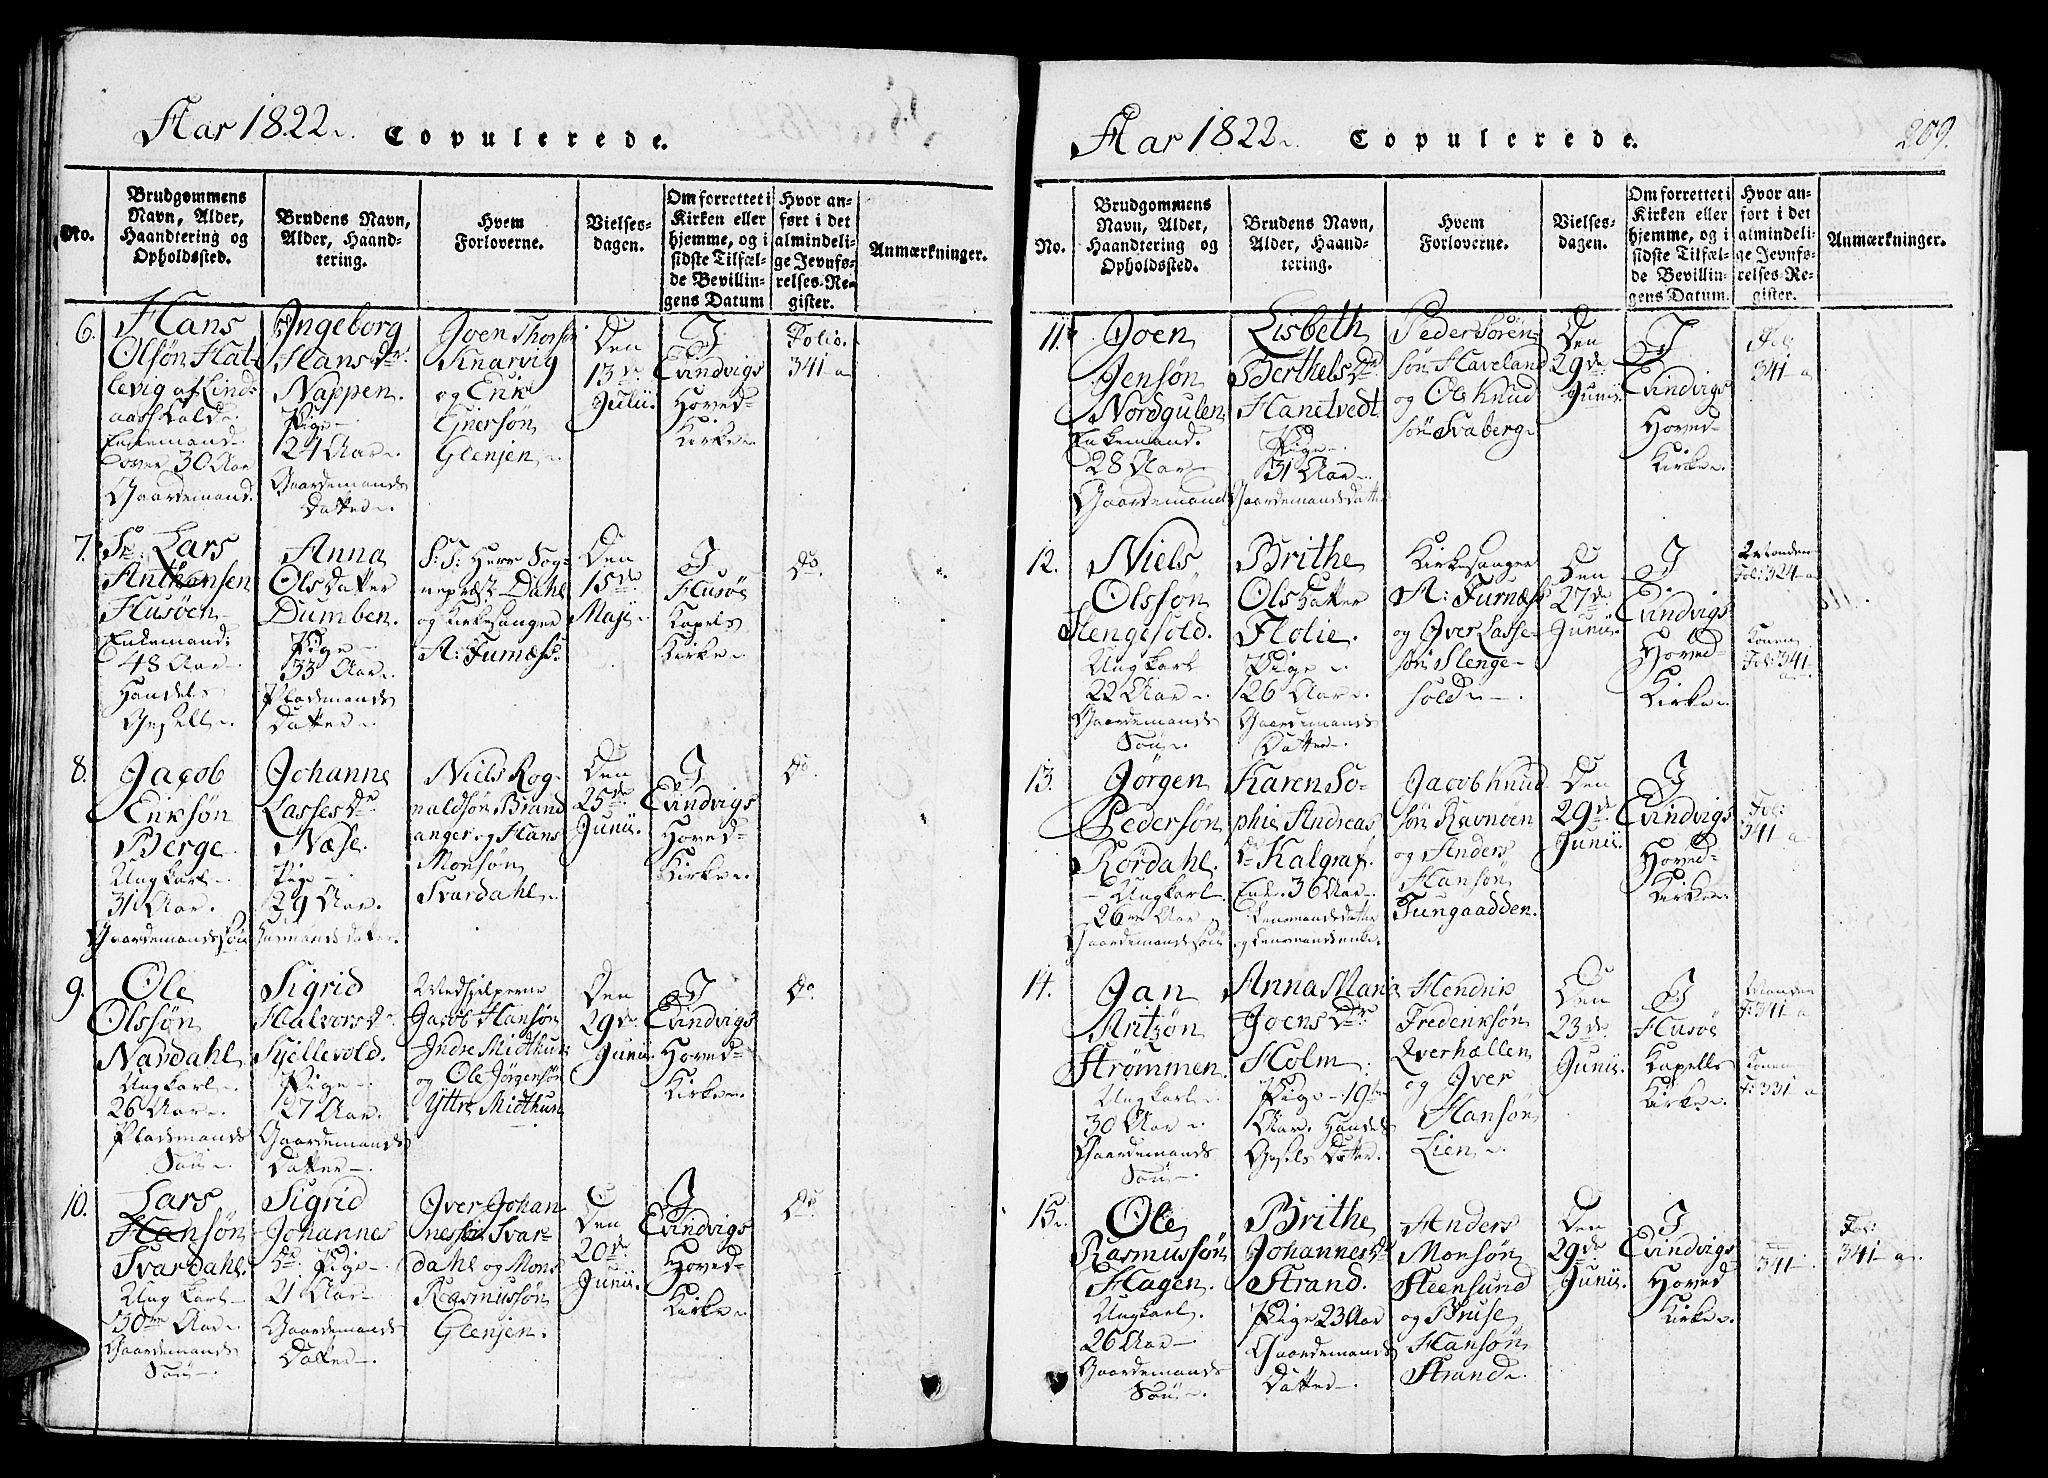 Aar 1822. Copulerede.
No.
Brudgommens
Navn, Alder,
Haandtering og
Opholdssted.
Brudens Navn,
Alder, Haand-
tering.
Hvem
Forloverne.
Vielses-
dagen.
Om forrettet i
Kirken eller
hjemme, og i
sidste Tilfæl-
de Bevillin-
gens Datum
Hvor an-
ført i det
almindeli-
ge Jevnfø-
relses-Re-
gister.
Anmærkninger.
6.
Hans
Olsøn Hat-
levig af Linds
aas Kald
Enkemand
over 30 Aar
Gaardemand.
Ingeborg
Hans Dr.
Nappen.
Pige
24 Aar
Gaardemands
Datter
Joen Thorsøn
Knarvig
og Erik
Einersøn
Glenjen
Den
13de
Julii.
I
Evindvigs
Hoved-
Kirke
Folio.
341 a
7.
Sr. Lars
Anthonsen
Husøen
Enkemand:
48 Aar
Handels
Gesell
Anna
Olsdatter
Dumben.
Pige
33 Aar
Pladsmands
Datter
S: T: Herr Sog-
nepræst Dahl
og Kirkesanger
A: Furnæss.
Den
15de
Maji
I
Husøe
Kapels
Kirke
Do.
8.
Jacob
Eriksøn
Berge
Ungkarl
31 Aar.
Gaardemands Søn
Johanne
Lasses Dr
Næse.
Pige
29 Aar.
Husmands datter.
Niels Rog-
naldsøn Brand
anger og Hans
Monsøn
Svardahl
Den
25de
Junii.
I
Evindvigs
Hoved-
Kirke
Do.
9.
Ole
Olssøn
Nardahl
Ungkarl
26 Aar
Pladsmands
Søn
Sigrid
Halvors Dr.
Skjellevold.
Pige
27 Aar.
Gaardemands
Datter
Medhjelperne
Jacob Hansøn
Indre Midthun
og Ole Jørgensøn
Yttre Midthun
Den
29de
Junii.
I
Evindvigs
Hoved-
Kirke
Do.
10.
Lars
Hansøn
Svardahl.
Ungkarl
30 Aar
Gaardemands
Søn
Sigrid
Johannes
Dr. Pige
21 Aar
Gaardemands
Datter
Iver Johan
nessøn Svar-
dahl og Mons
Rasmussøn
Glenjen.
Den
20de
Junii.
I
Evindvigs
Hoved-
Kirke
Do.
Aar 1822. Copulerede. 209.
No.
Brudgommens
Navn, Alder,
Haandtering og
Opholdssted.
Brudens Navn,
Alder, Haand-
tering.
Hvem
Forloverne.
Vielses-
dagen.
Om forrettet i
Kirken eller
hjemme, og i
sidste Tilfæl-
de Bevillin-
gens Datum.
Hvor an-
ført i det
almindeli-
ge Jevnfø-
relses-Re-
gister.
Anmærkninger.
11.
Joen
Jensøn
Nordgulen
Enkemand.
28 Aar
Gaardemand
Lisbeth
Berthels Dr
Hanetvedt
Pige
31 Aar
Gaardemands Datter
Peder Søren
søn Haveland
og Ole Knud
søn Svaberg
Den
29de
Junii.
I
Evindvigs
Hoved-
Kirke
Fol:
341 a
12.
Niels
Olssøn
Slengesold.
Ungkarl
22 Aar
Gaardemands
Søn
Brithe
Olsdatter
Flolie.
Pige
26 Aar
Gaardemands
Datter
Kirkesanger
A: Furnæss
og Iver Lasse-
søn Slenge-
sold
Den
27de
Junii.
I
Evindvigs
Hoved-
Kirke
Fol: 324 a
Konen
Fol: 341
a
13.
Jørgen
Pedersøn
Rørdahl.
Ungkarl
26 Aar
Gaardemands søn
Karen So-
phie Andreas
Dr Kalgraf.
Enke. 36 Aar
Jacob Knud
søn Ravnøen
og Anders
Hansøn
Tungaadden.
Den
29de
Junii.
I
Evindvigs
Hoved-
Kirke
Fol:
341 a
14.
Jan
Aritzøn
Strømmen.
Ungkarl
30 Aar
Gaardemands
Søn
Anna Maria
Joens Dr
Holm
Pige 19
Aar. Handels
Gesels Datter.
Hendrik
Frederiksøn
Qverhællen
og Iver
Hansøn
Lien
Den
23de
Junii.
I
Husøe
Kapells
Kirke
Manden
F: 341 a
Konen
F: 331 a
15.
Ole
Rasmussøn
Hagen.
Ungkarl
26 Aar
Gaardemands
Søn
Brithe
Johannes Dr
Strand.
Pige 23 Aar
Gaardemands
Datter
Anders
Monsøn
Steensund
og Bruse
Hansøn
Strand
Den
29de
Junii.
I
Evindvigs
Hoved
Kirke
341
Fol:
341 a